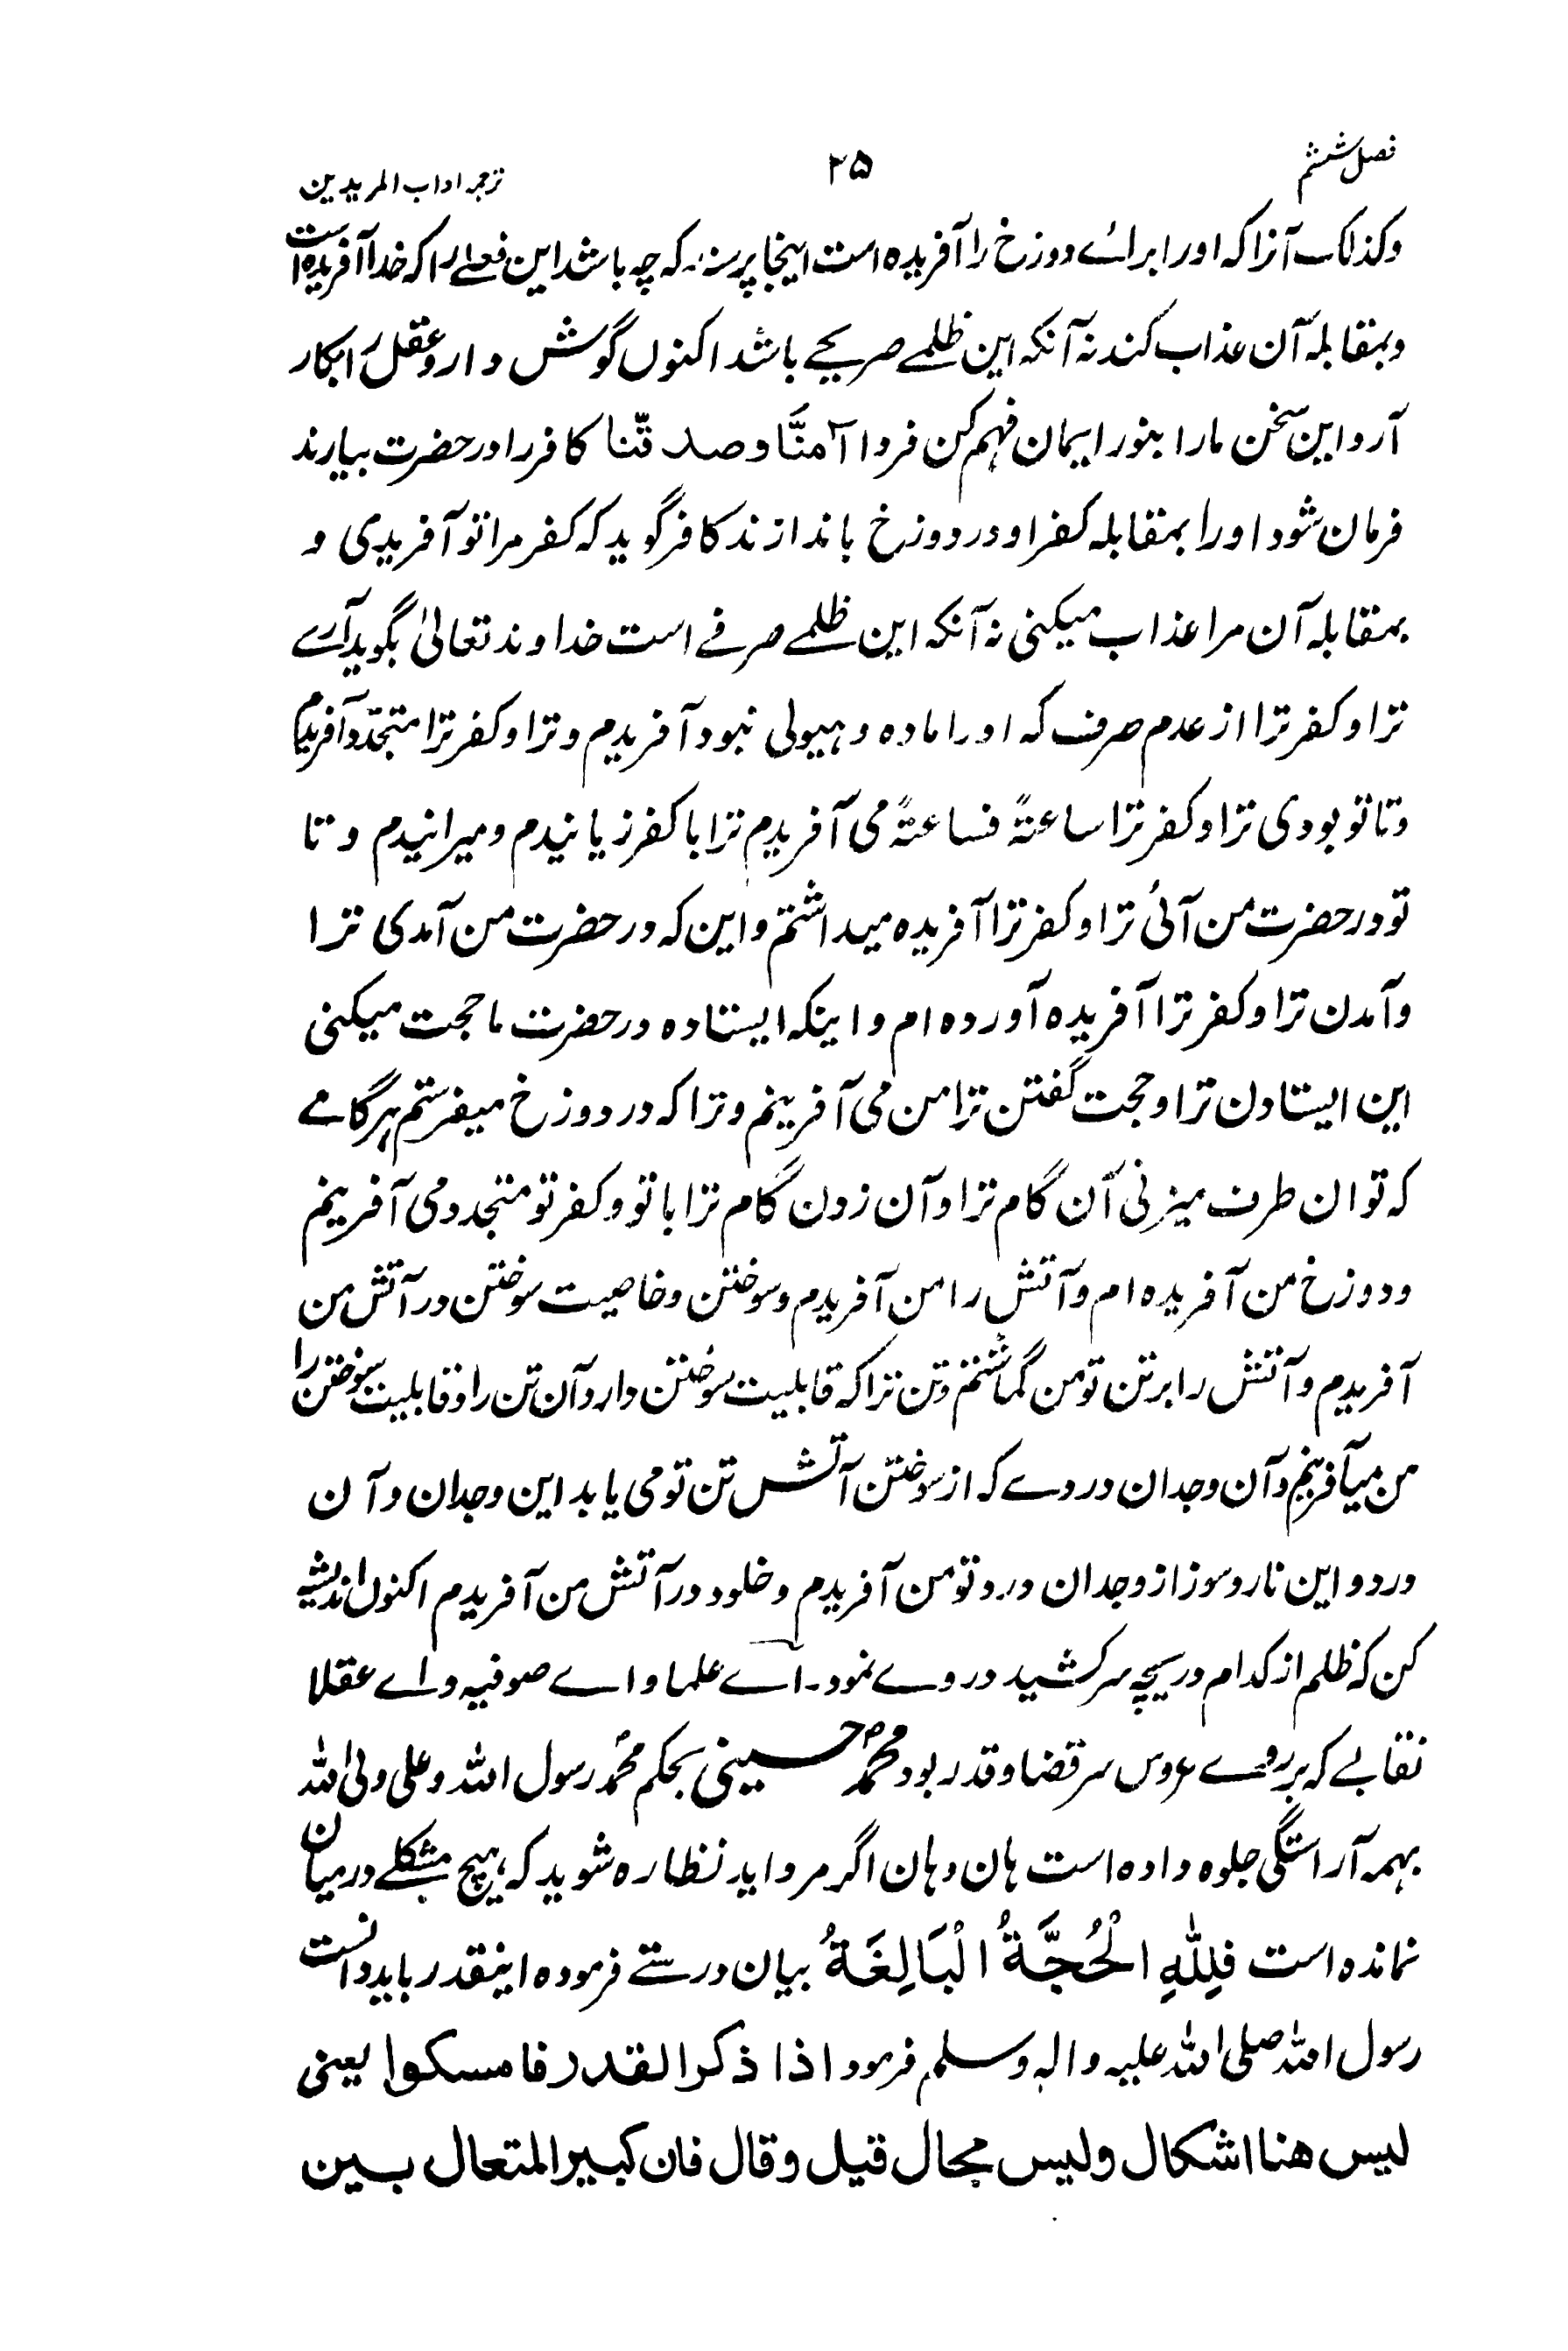 فصل ششم
۲۵
ترجمہ اداب المریدین
وکذلک آنرا کہ اورا براے دوزخ را آفریدہ است اینجا پرسند کہ چہ باشد این فعلے را کہ خدا آفریدہ است
وبمقابلہ آن عذاب کند نہ آنکہ این ظلمے صریحے باشد اکنوں گوش دار و عقل را بکار
آر و این سخن مارا بنور ایمان فہم کن فردا آمنَّا وصدقّنا کافر را در حضرت بیارند
فرمان شود اورا بمقابلہ کفر او در دوزخ باندازند کافر گوید کہ کفر مرا تو آفریدی و
بمقابلہ آن مرا عذاب میکنی نہ آنکہ این ظلمے صرفے است خداوند تعالیٰ بگوید آرے
ترا و کفر ترا از عدم صرف کہ اورا مادہ و ہیولی نبود آفریدم و ترا و کفر ترا متجدّد آفریدم
وتا تو بودی ترا و کفر ترا ساعتہً فساعتہً می آفریدم ترا با کفر زیانیدم ومیرانیدم و تا
تو در حضرت من آئی ترا و کفر ترا آفریدہ میداشتم و این کہ در حضرت من آمدی ترا
وآمدن ترا و کفر ترا آفریدہ آوردہ ام و اینکہ ایستادہ در حضرت ما حجت میکنی
این ایستادن ترا و حجت گفتن ترا من می آفرینم و ترا کہ در دوزخ میفرستم ہر گامے
کہ تو ان طرف میزنی آن گام ترا و آن زدن گام ترا با تو و کفر تو متجدد می آفرینم
ودوزخ من آفریدہ ام و آتش را من آفریدم و سوختن و خاصیت سوختن در آتش من
آفریدم و آتش را برتن تو من گماشتم وتن ترا کہ قابلیت سوختن دارد آن تن را و قابلیت سوختن را
من میآفرینم و آن وجدان دردے کہ از سوختن آتش تن تو می یابد این وجدان و آن
درد و این نار و سوز از وجدان درد تو من آفریدم و خلود در آتش من آفریدم اکنوں اندیشہ
کن کہ ظلم از کدام دریچہ سرکشید در وے نمود۔ اے علما و اے صوفیہ و اے عقلا
نقابے کہ بر روے عروس سر قضا و قدر بود محمد حسینی بحکم محمد رسول اللہ و علی ولی اللہ
بہمہ آراستگی جلوہ دادہ است ہان وہان اگر مرد اید نظارہ شوید کہ ہیچ مشکلے درمیان
نماندہ است فَلِلّٰهِ الْحُجَّةُ الْبَالِغَةُ بیان درستے فرمودہ اینقدر باید دانست
رسول اللہ صلی اللہ علیہ والہ وسلم فرمود اذا ذکر القدر فامسکوا یعنی
لیس هنا اشکال ولیس مجال قیل و قال فان کبیر المتعال بین